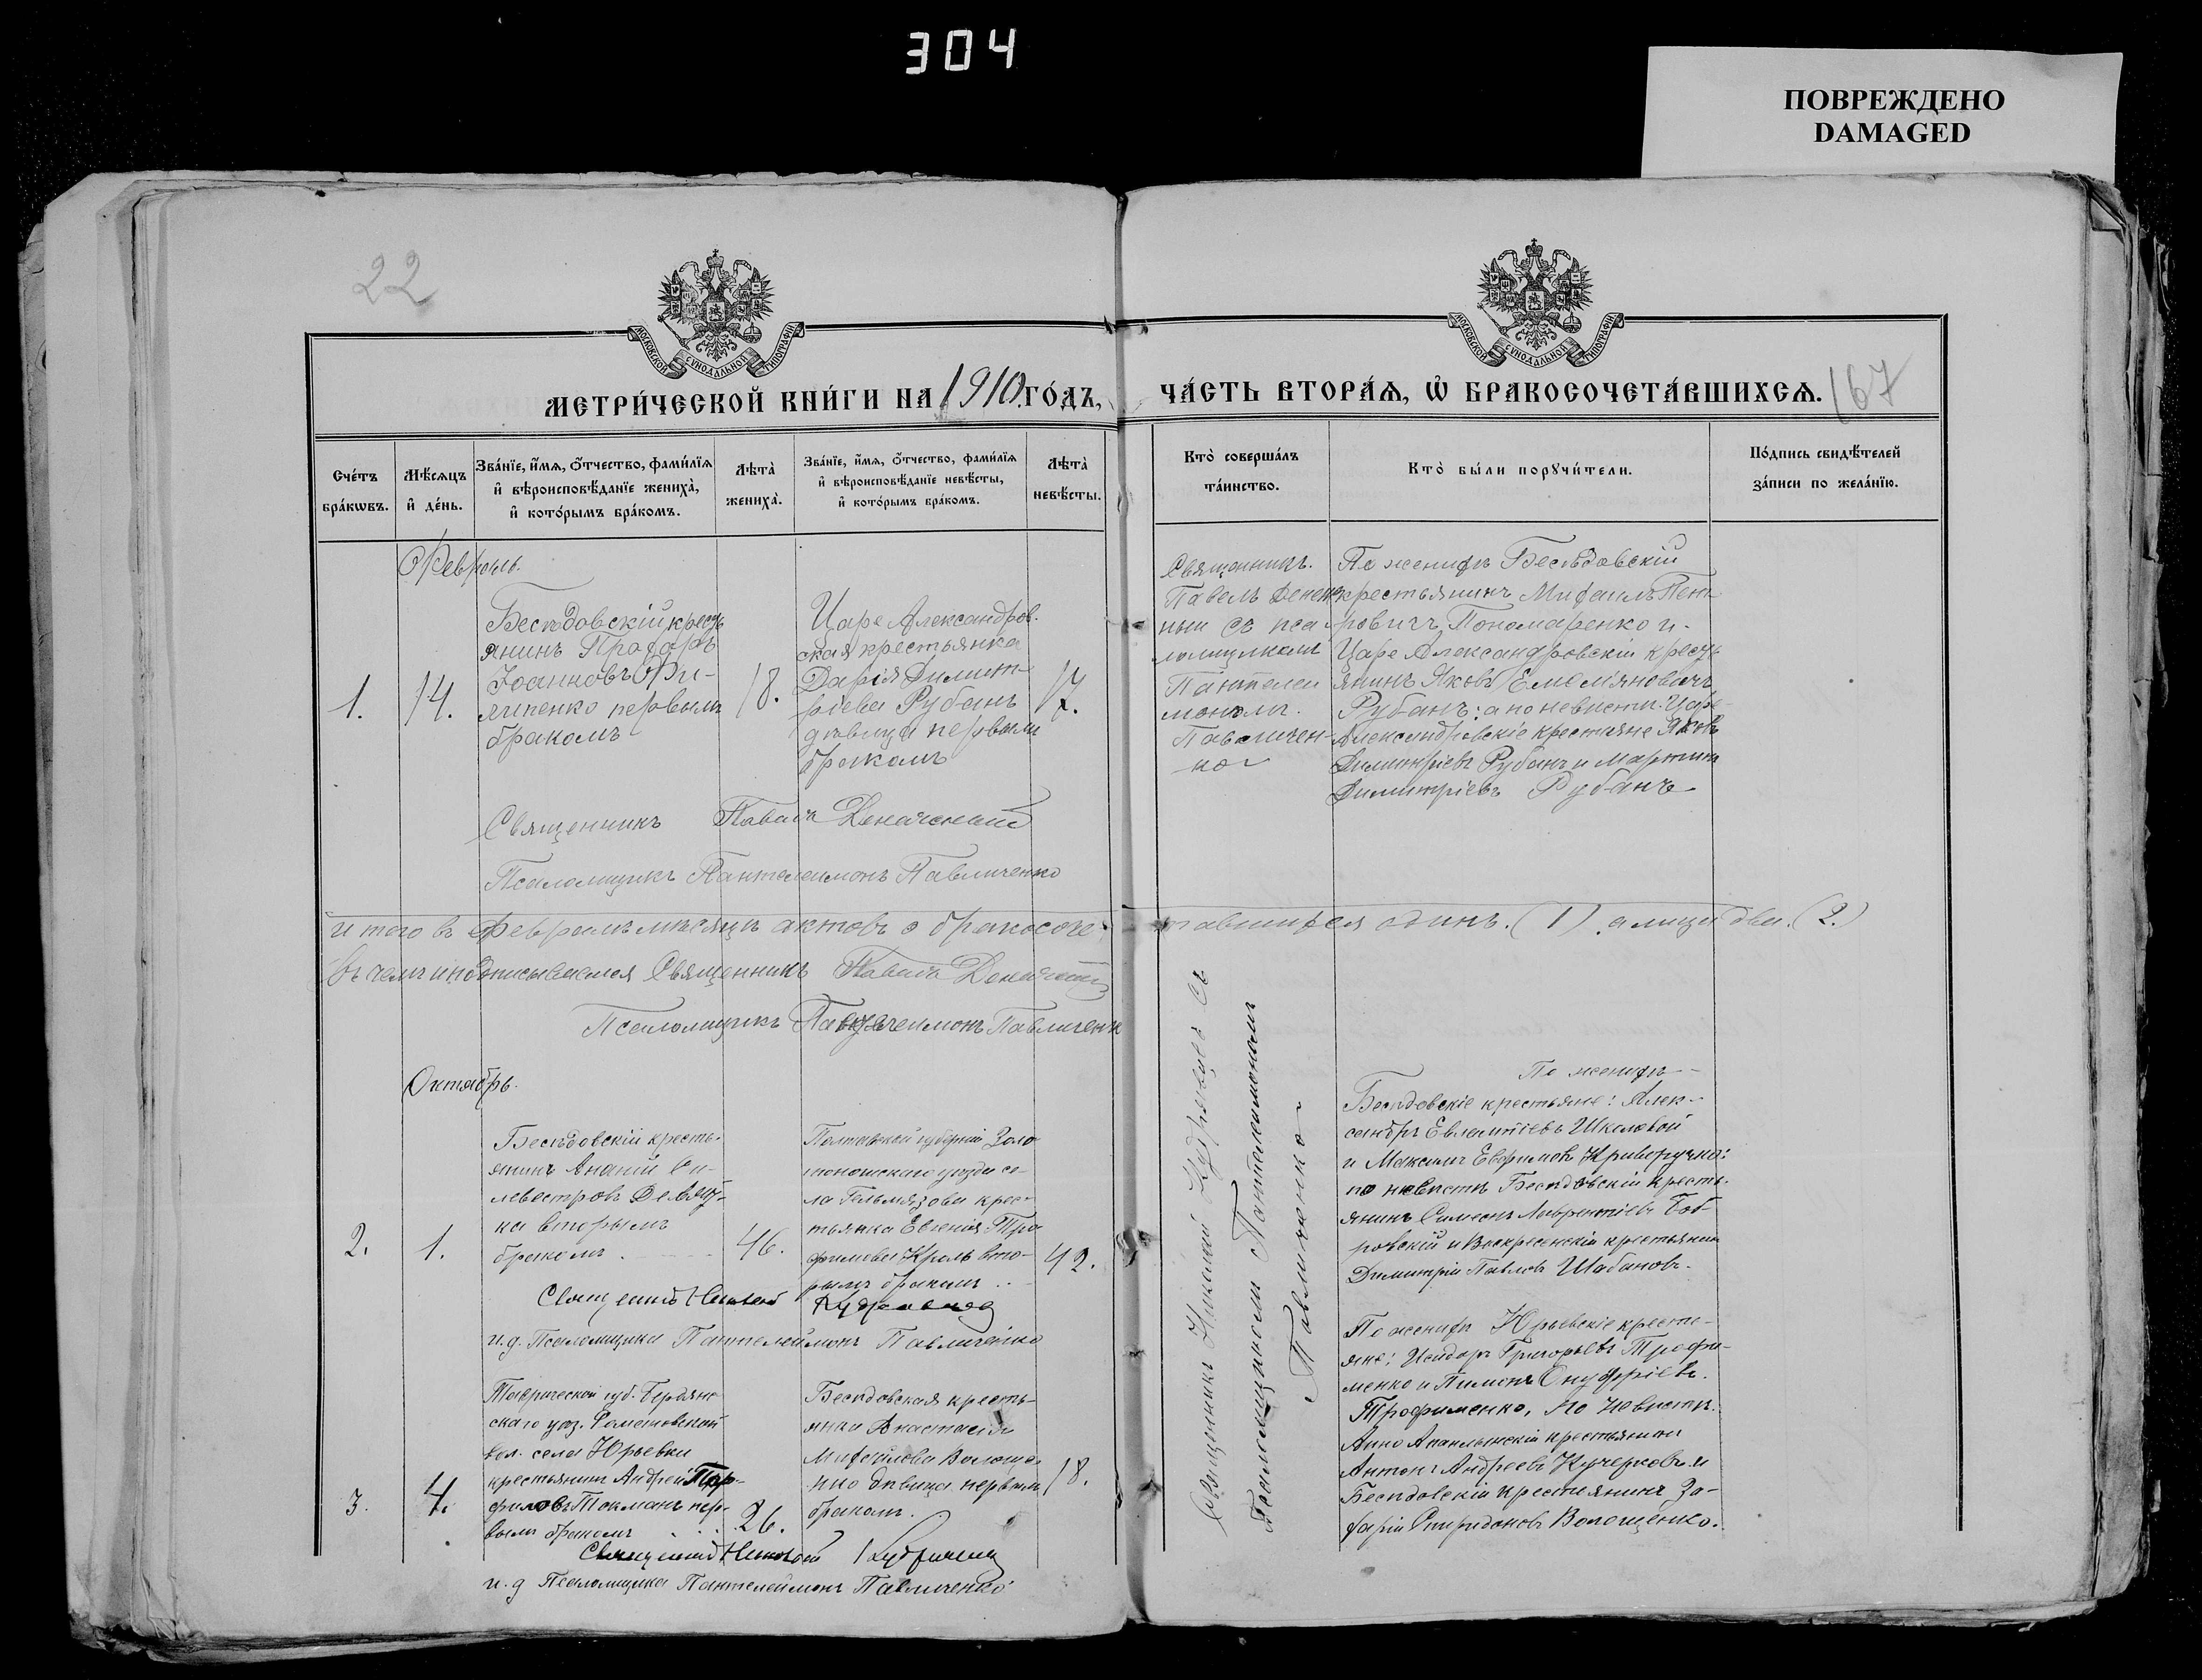 304
ПОВРЕЖДЕНО
DAMAGED
22
МОСКОВСКОЙ СѴНОДАЛЬНОЙ ТИПОГРАФІИ
МОСКОВСКОЙ СѴНОДАЛЬНОЙ ТИПОГРАФІИ
МЕТРИ́ЧЕСКОЙ КНИ́ГИ НА 1910 ГО́ДЪ,
ЧА́СТЬ ВТОРА́Я, Ѡ БРАКОСОЧЕТА́ВШИХСЯ.
167
Сче́тъ
бра́кѡвъ.
Мѣ́сяцъ
и҆ де́нь.
Зва́нїе, и҆́мя, ѻ҆́тчество, фами́лїя
и҆ вѣроисповѣ́данїе жениха̀,
и҆ кото́рымъ бра́комъ.
Лѣта̀
жениха̀.
Зва́нїе, и҆́мя, ѻ҆́тчество, фами́лїя
и҆ вѣроисповѣ́данїе невѣ́сты,
и҆ кото́рымъ бра́комъ.
Лѣта̀
невѣ́сты.
Кто̀ соверша́лъ
та́инство.
Кто̀ бы́ли порꙋчи́тели.
По́дпись свидѣ́телей
за́писи по жела́нїю.
Февраль.
1.
14.
Бесѣдовскій кресть
янинъ Прохоръ
Іоанновъ Фи-
липенко первымъ
бракомъ
18.
Царе Александров.
ская крестьянка
Дарія Димит-
ріева Рубанъ
дѣвица первымъ
бракомъ
17.
Священникъ.
Павелъ
ный съ пса
ломщикомъ
Пантелеи
мономъ.
Павличен-
ко
По женихѣ Бесѣдовскій
крестьянинъ Михаилъ Пет
ровичъ Пономаренко и
Царе Александровскій кресть
янинъ Яковъ Емельяновичъ
Рубанъ; а по невѣстѣ: Царе-
Александровскіе крестьяне Яковъ
Димитріевъ Рубанъ и Мартинъ
Димитріевъ Рубанъ
Священникъ Павелъ
Псаломщикъ Пантелеимонъ Павличенко
Итого въ Февралѣ мѣсяцѣ актовъ о бракосоче-
тавшихся одинъ. (1) а лицъ два. (2.)
Въ чемъ и подписываемся Священникъ Павелъ
Псаломщикъ Пантелеимонъ Павличенк
Октябрь.
2.
1.
Бесѣдовскій кресть-
янинъ Ананій Си-
левестровъ
ка вторымъ
бракомъ
46.
Полтавской губерніи Золо
тоношскаго уѣзда се-
ла Гельмязова крес-
тьянка Евгенія Тро
фимова Кроль вто-
рымъ бракомъ
42.
Священникъ Николай Кудрявцевъ съ
Псаломщикомъ Пантелеимономъ
Павличенко
По женихѣ
Бесѣдовскіе крестьяне: Алек-
сандръ Евлампіевъ Школовой
и Максимъ Евфимовъ Криворучко:
по невѣстѣ Бесѣдовскій кресть-
янинъ Симеонъ Лаврентіевъ Боб
ровскій и Воскресенскій крестьянинъ
Димитрій Павловъ Шабановъ.
Священникъ Николай
и. д. Псаломщика Пантелеимонъ Павличенко
3.
4.
Таврической губ. Бердянс
скаго уѣз.
вол. села Юрьевки
крестьянинъ Андрей
Токманъ пер-
вымъ бракомъ
26.
Бесѣдовская кресть-
янка Анастасія
Михайлова Волоще
нко дѣвица первымъ
бракомъ.
18.
По женихѣ Юрьевскіе кресть-
яне: Исидоръ Григорьевъ Трофи-
менко и Пименъ Онуфріевъ.
Трофименко, По невѣстѣ.
крестьянинъ
Антонъ Андреевъ Кучерковъ и
Бесѣдовскій крестьянинъ За-
харій Спиридоновъ Волощенко.
Священникъ Николай
и. д Псаломщика Пантелеимонъ Павличенко